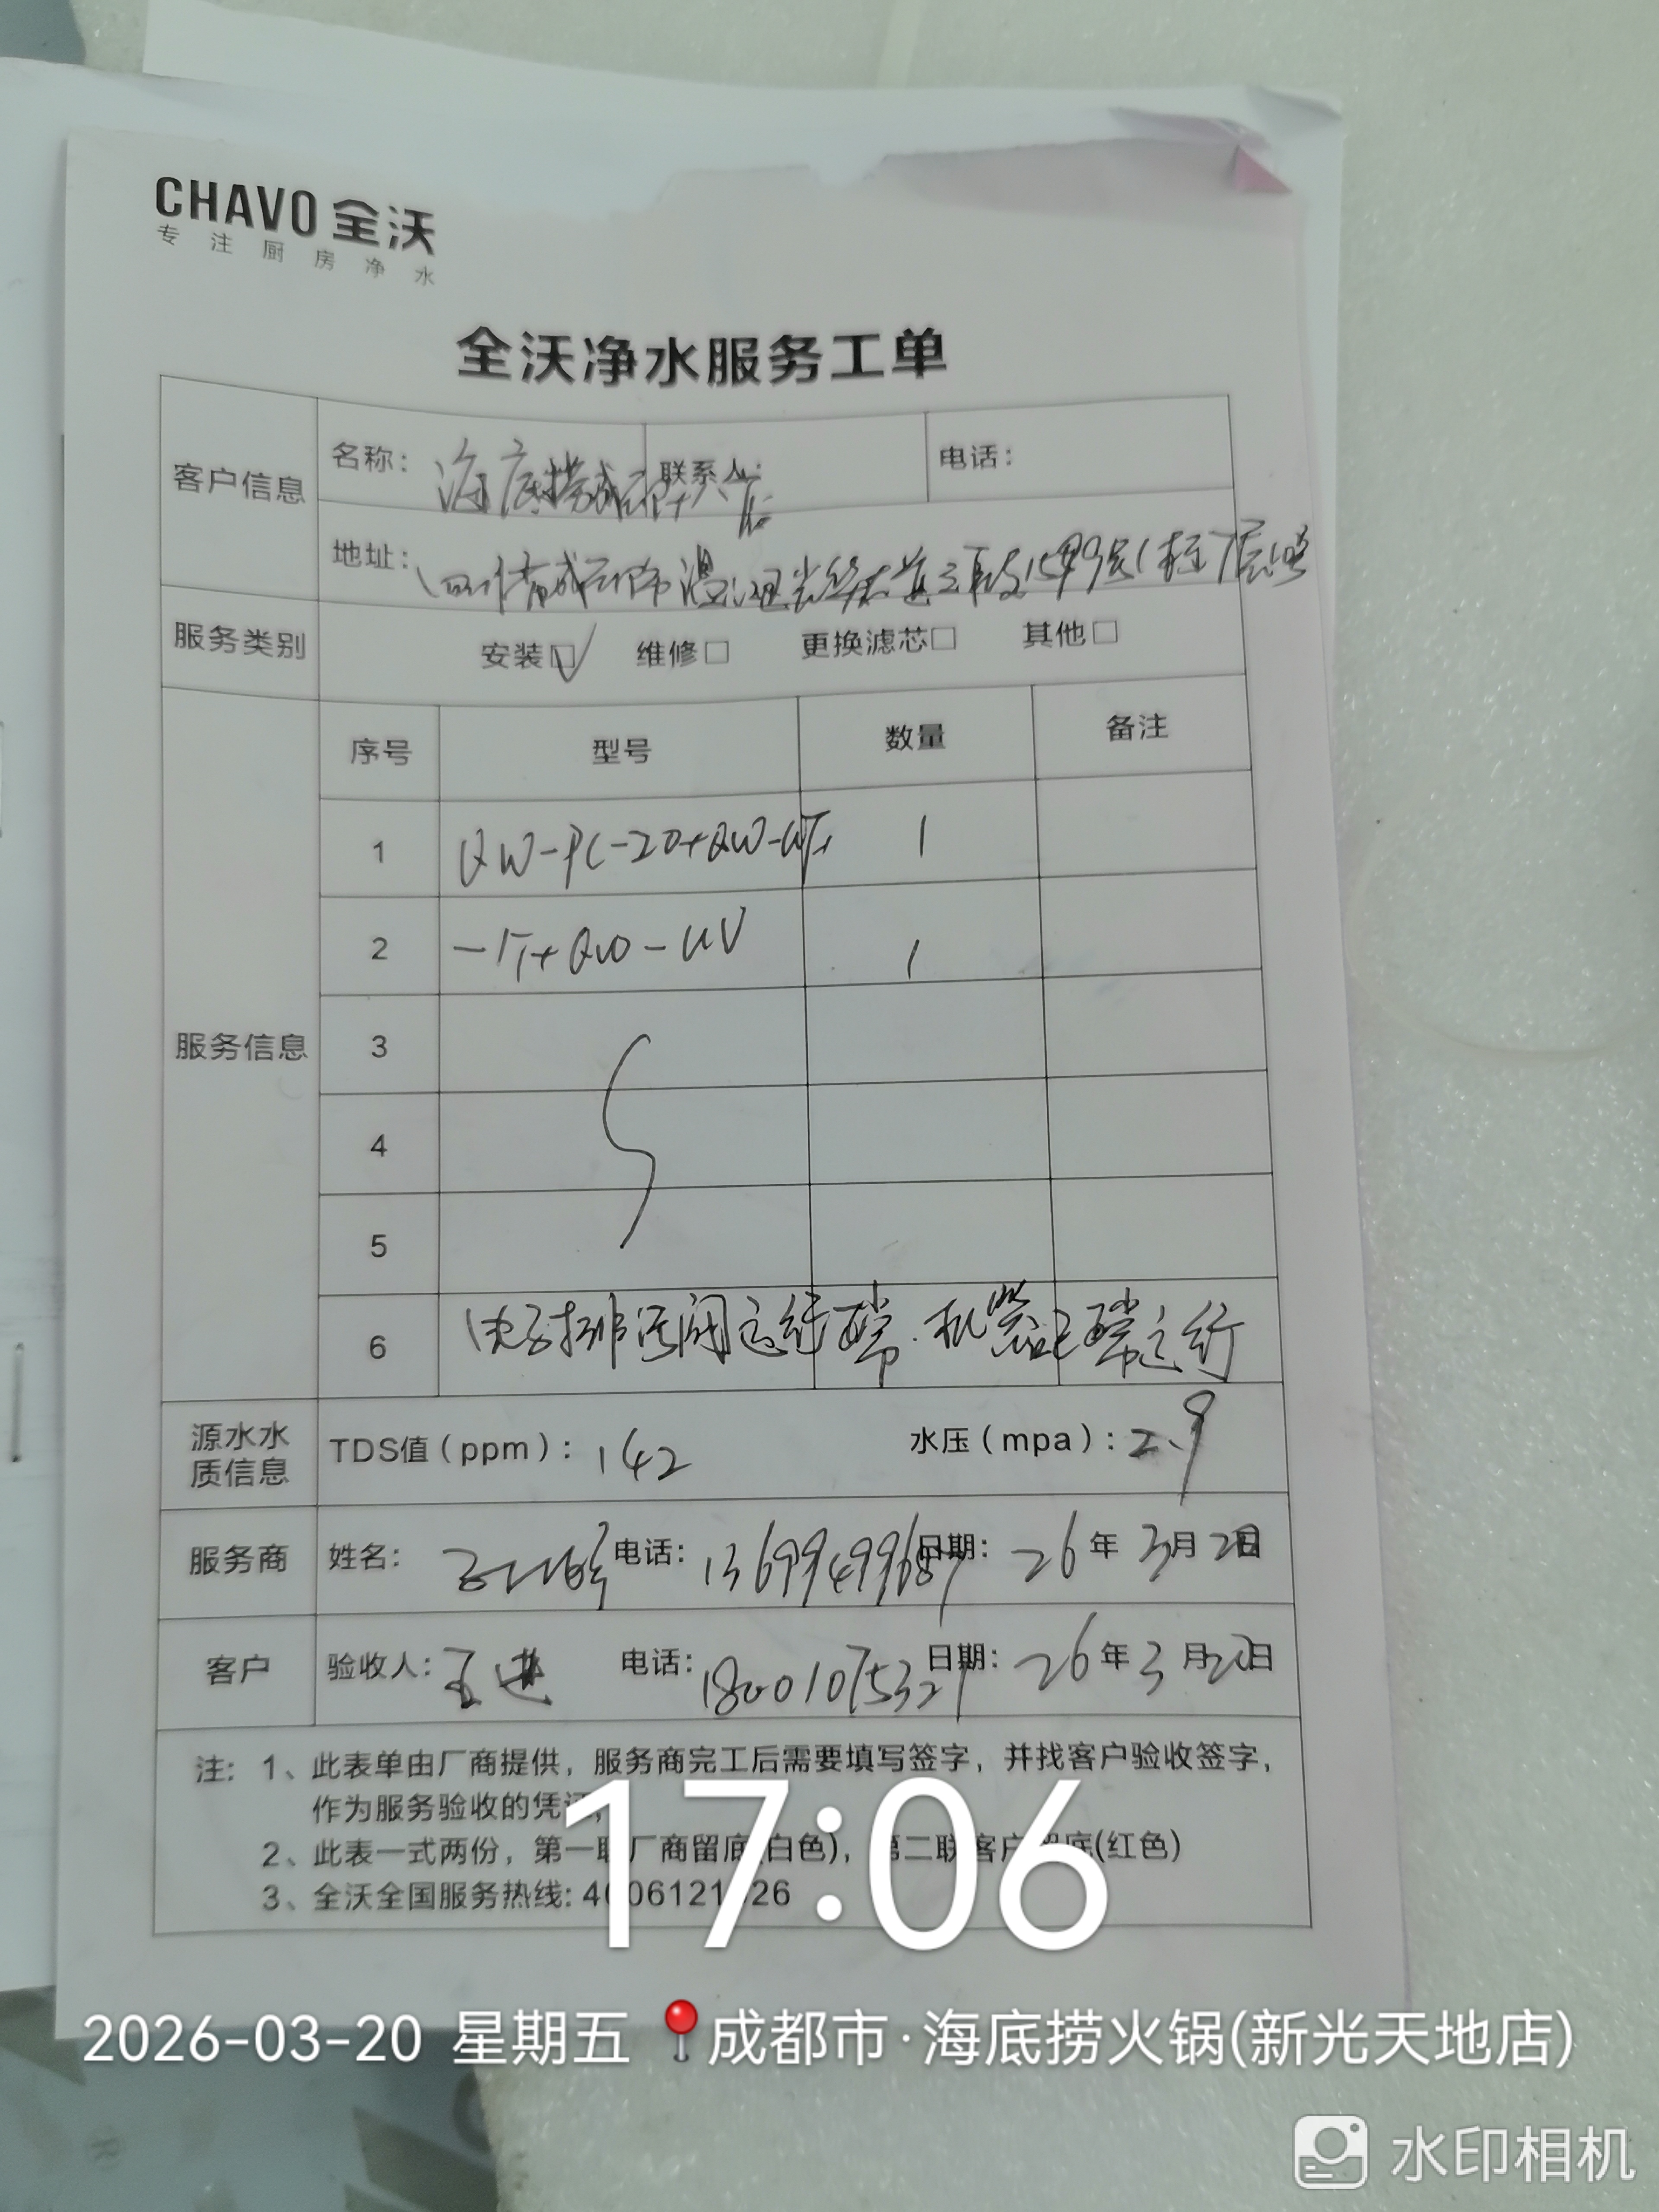 CHAVO 全沃
专注厨房净水
全沃净水服务工单
客户信息 名称: 海底捞成都 店 联系人: 电话:
地址: 四川省成都市温江区光华大道三段1588号
服务类别 安装☑ 维修□ 更换滤芯□ 其他□
服务信息 序号 型号 数量 备注
1 QW-PC-20+QW- 1
2 QW-UV 1
3
4
5
6 电子排污阀运行正常.机器正常运行
源水水质信息 TDS值(ppm): 142 水压(mpa): 2.9
服务商 姓名: 电话: 13699499687 日期: 26年3月20日
客户 验收人: 王进 电话: 18001075327 日期: 26年3月20日
注: 1、此表单由厂商提供,服务商完工后需要填写签字,并找客户验收签字,
作为服务验收的凭证;
2、此表一式两份,第一联厂商留底(白色),第二联客户留底(红色)
3、全沃全国服务热线:
17:06
2026-03-20 星期五 成都市·海底捞火锅(新光天地店)
水印相机